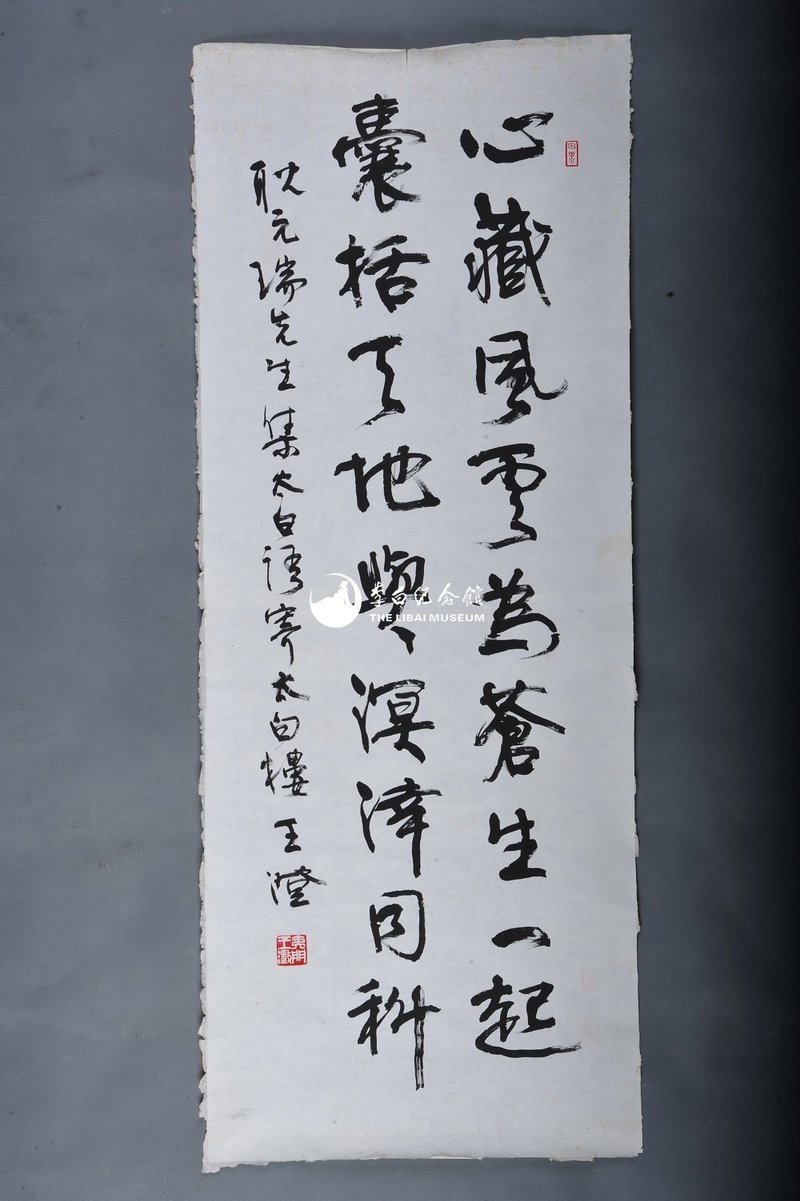 心藏風雲為蒼生一起
囊括天地與溟涬同科
耿元瑞先生集太白語寄太白樓 王澄
李白纪念館
THE LIBAI MUSEUM